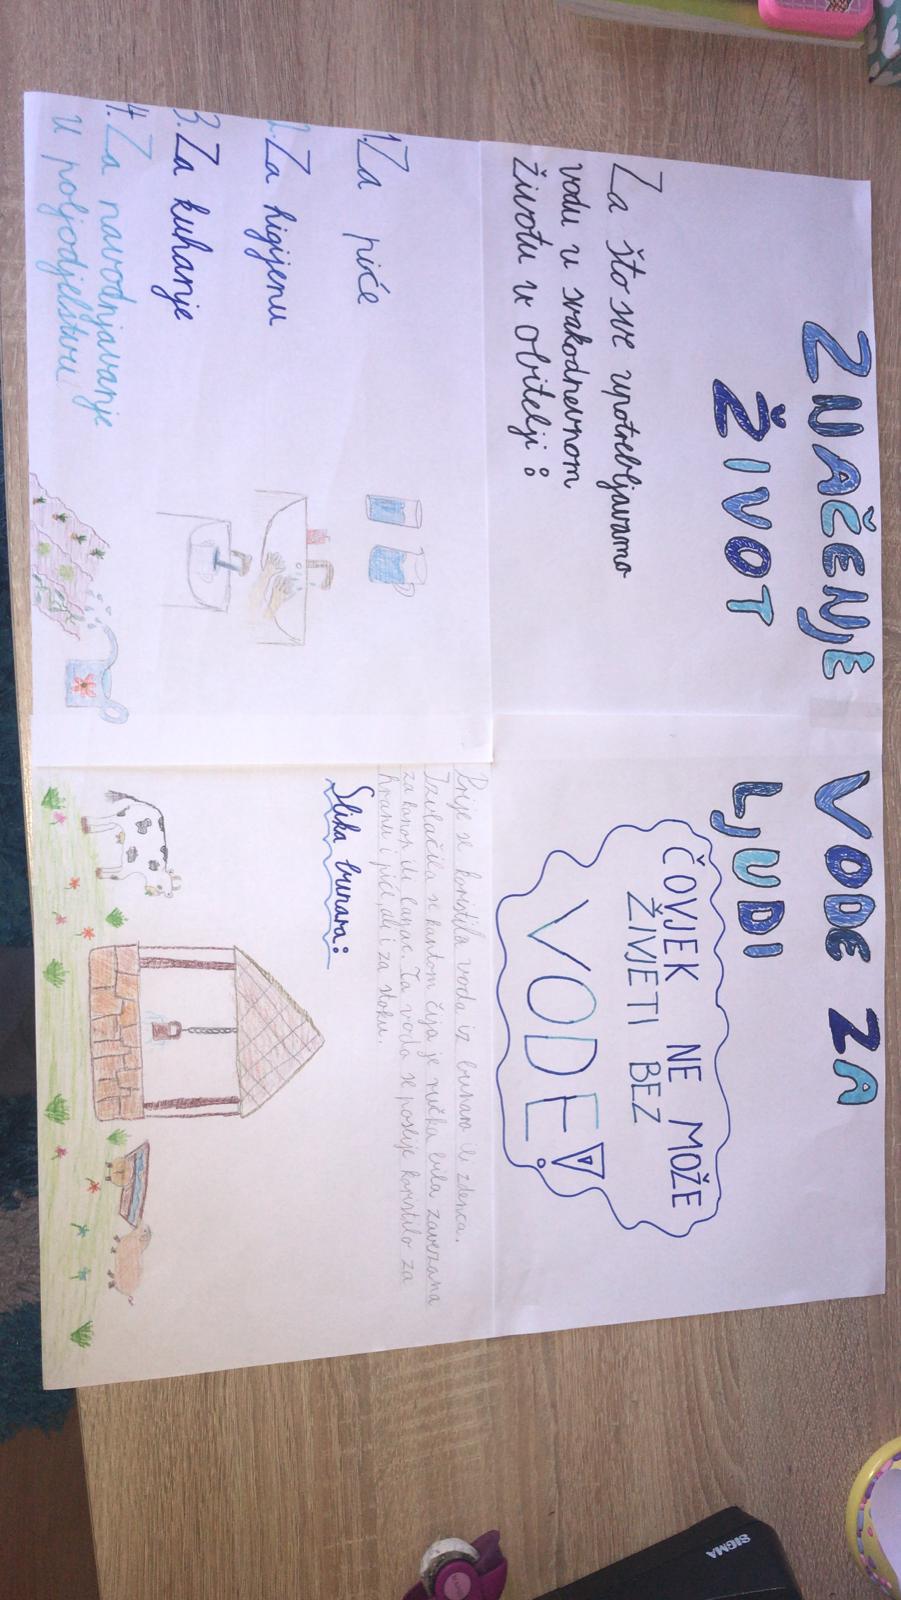 ZNAČENJE VODE ZA
ŽIVOT LJUDI
Za što sve upotrebljavamo
vodu u svakodnevnom
životu u obitelji:
1. Za piće
2. Za higijenu
3. Za kuhanje
4. Za navodnjavanje
u poljodjelstvu
ČOVJEK NE MOŽE
ŽIVJETI BEZ
VODE!
Prije se koristila voda iz bunara ili zdenca.
Izvlačila se kantom čija je ručka bila zavezana
za konop ili lanac. Ta voda se poslije koristilo za
hranu i piće, ali i za stoku.
Slika bunara:
SIGMA